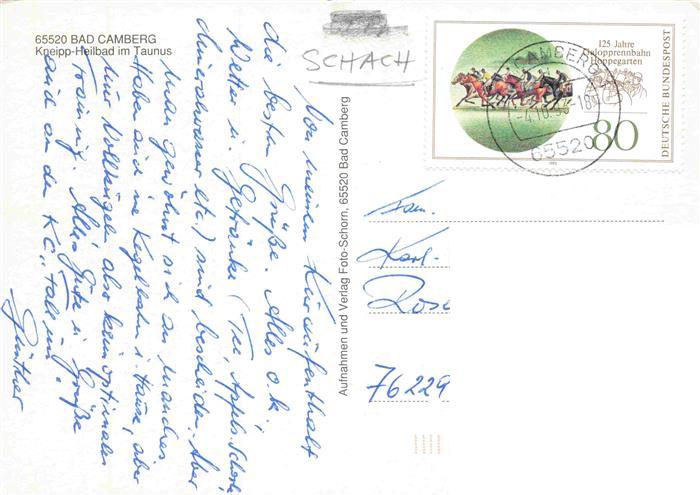 65520 BAD CAMBERG
Kneipp-Heilbad im Taunus
SCHACH
Von meinem Kuraufenthalt
die besten Grüße. Alles o.k.
Wetter u. Getränke (Tee, Apfels.Schorle
Mineralwasser etc.) sind bescheiden. Aber
man gewöhnt sich an manches
Habe auch ne Kegelbahn i. Hause, aber
nur Vollkugeln also kein optimales
Training. Alles Gute u. Grüße
auch an den KC "Fall um".
Günther
Aufnahmen und Verlag Foto-Schorn, 65520 Bad Camberg
125 Jahre
Galopprennbahn
Hoppegarten
DEUTSCHE BUNDESPOST
80
CAMBERG
65520
Fam.
Karl-
Rose
76229